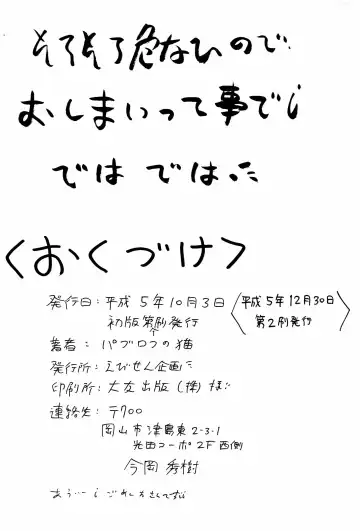 そろそろ危ないので
おしまいって事で
では では
〈おくづけ〉
発行日：平成5年10月3日
初版第刷発行
〈平成5年12月30日
第2刷発行〉
著者：パブロフの猫
発行所：えびせん企画
印刷所：大友出版(株)様
連絡先：〒700
岡山市津島東2-3-1
光田コーポ2F西側
今岡秀樹